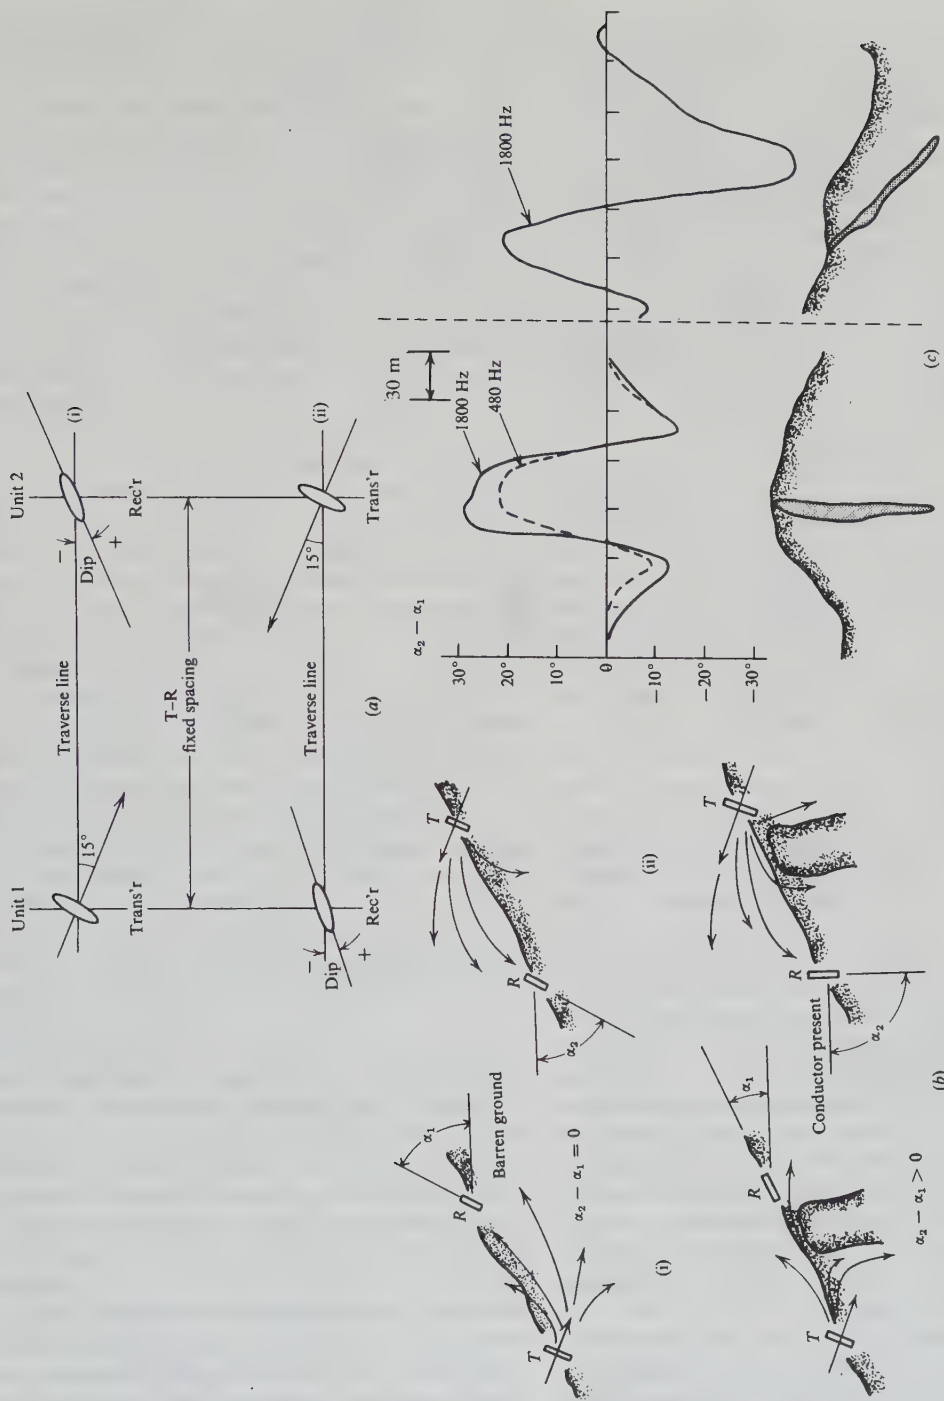 Unit 1
Unit 2
15°
Traverse line
−
Dip
+
(i)
Trans'r
Rec'r
T–R
fixed spacing
−
Dip
+
Traverse line
15°
(ii)
Rec'r
Trans'r
(a)
T
R
α₁
Barren ground
α₂ − α₁ = 0
(i)
R
T
α₂
(ii)
T
R
α₁
α₂ − α₁ > 0
Conductor present
R
T
α₂
(b)
α₂ − α₁
30°
20°
10°
0
−10°
−20°
−30°
30 m
1800 Hz
480 Hz
1800 Hz
(c)